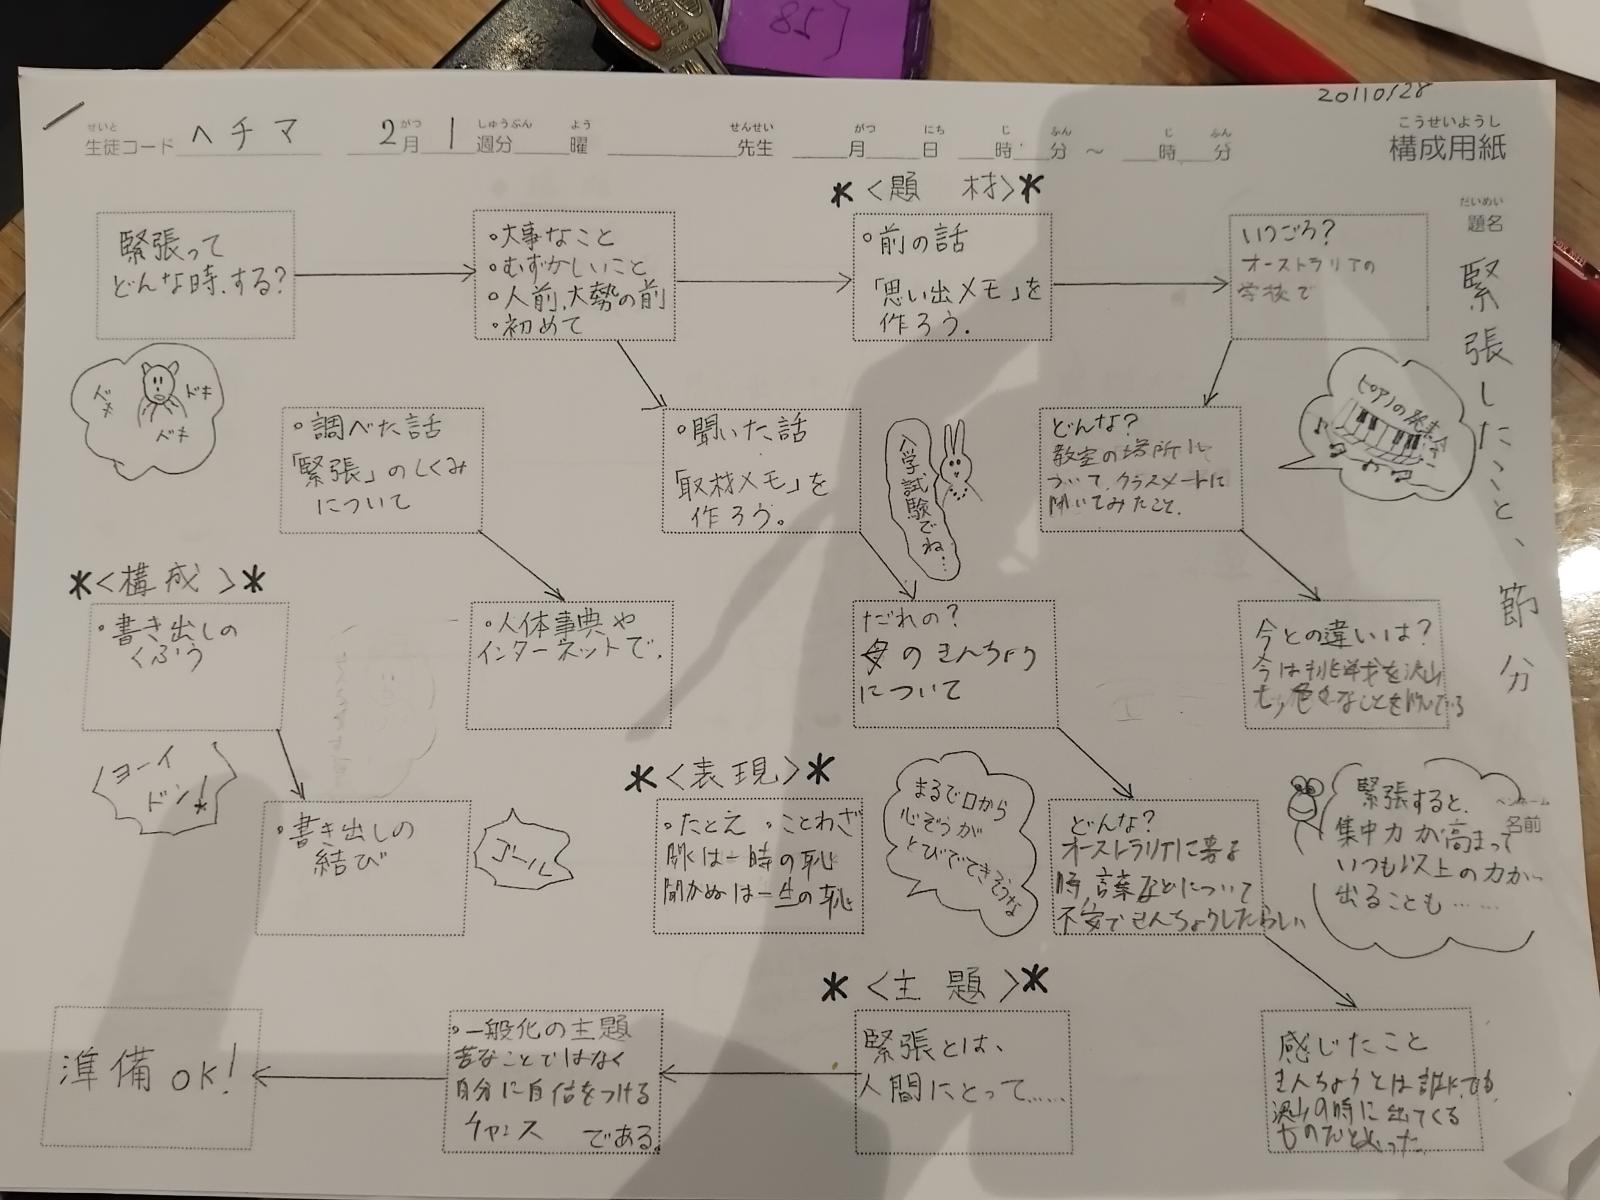 85
20110128
せいと
生徒コード ヘチマ 2月 1週分 曜 先生 月 日 時 分 ～ 時 分
がつ しゅうぶん よう せんせい がつ にち じ ふん じ ふん
こうせいようし
構成用紙
だいめい
題名
緊張したこと、節分
ペンネーム
名前
＊〈題 材〉＊
緊張って
どんな時、する?
ドキ
ドキ
ドキ
・大事なこと
・むずかしいこと
・人前、大勢の前
・初めて
・前の話
「思い出メモ」を
作ろう.
いつごろ?
オーストラリアの
学校で
ピアノの発表会
・調べた話
「緊張」のしくみ
について
・聞いた話
「取材メモ」を
作ろう。
入学試験でね…
どんな?
教室の場所に
ついて、クラスメートに
聞いてみたこと.
＊〈構成〉＊
・書き出しの
くふう
・人体事典や
インターネットで.
だれの?
母のきんちょう
について
今との違いは?
今は
ヨーイ
ドン!
・書き出しの
結び
ゴール
＊〈表現〉＊
・たとえ ・ことわざ
聞くは一時の恥
聞かぬは一生の恥
まるで口から
心ぞうが
とびでてきそうな
どんな?
オーストラリアに来る
時、言葉などについて
不安できんちょうしたらしい
緊張すると、
集中力が高まって
いつも以上の力が
出ることも……
＊〈主 題〉＊
準備OK!
・一般化の主題
苦なことではなく
自分に自信をつける
チャンス である.
緊張とは、
人間にとって……
感じたこと
きんちょうとは誰にでも
沢山の時に出てくる
ものだと思った.